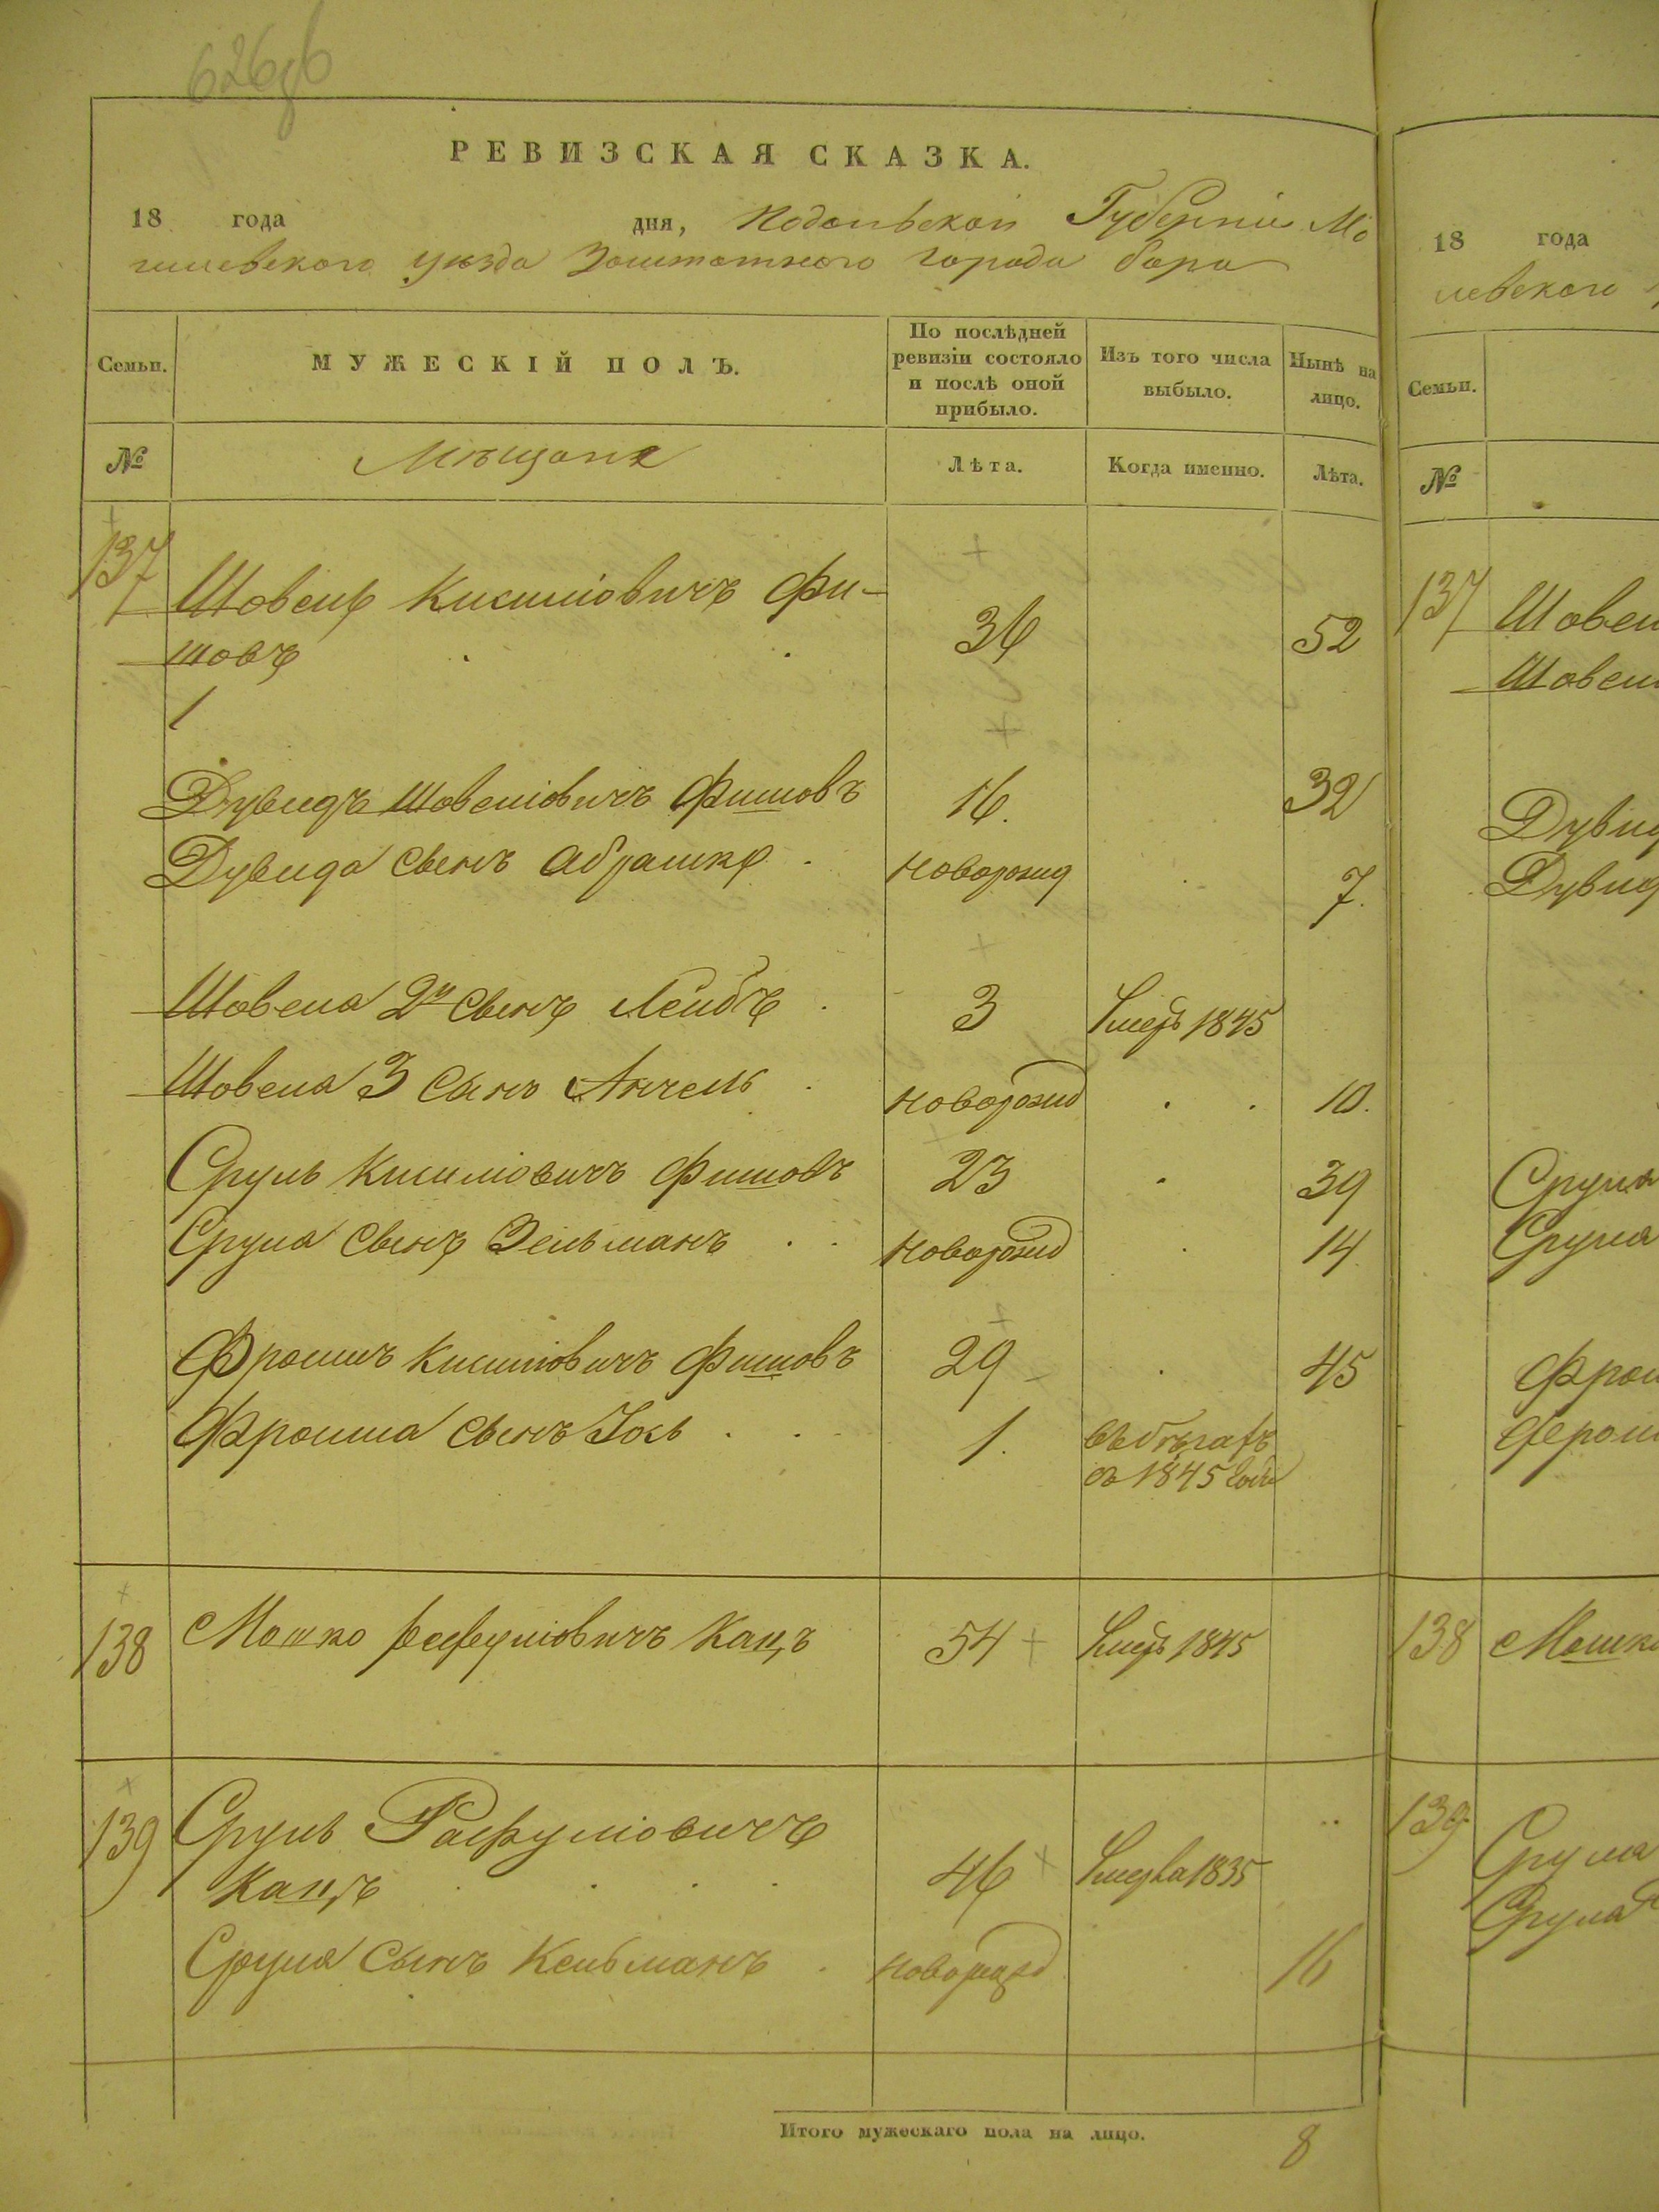 626об
РЕВИЗСКАЯ СКАЗКА.
18 года дня, Подольской Губерніи Мо
гилевского уѣзда Заштатного города бара
Семьи.
МУЖЕСКІЙ ПОЛЪ.
По послѣдней
ревизіи состояло
и послѣ оной
прибыло.
Изъ того числа
выбыло.
Нынѣ на
лицо.
№
Мѣщане
Лѣта.
Когда именно.
Лѣта.
137 Шовель Кисиліовичъ Фи-
шовъ 36 52
1
Дувидъ Шовеліовичъ Фишовъ 16. 32
Дувида сынъ Абрашко новорожд 7.
Шовеля 2й сынъ Лейбъ 3 Умеръ 1845
Шовеля 3 сынъ Анчель новорожд 10.
Сруль Кисиліовичъ Фишовъ 23 39
Сруля сынъ Зельманъ новорожд 14
Фроимъ Кисиліовичъ Фишовъ 29 45
Фроима сынъ Іось 1. въ бѣгахъ
съ 1845 года
138 Мошко Рефуліовичъ Кацъ 54 Умеръ 1845
139 Сруль Рафуліовичъ
Кацъ 46 Умер 1835
Сруля сынъ Кельманъ новорожд 16
Итого мужескаго пола на лицо. 8
18 года
левского
Семьи.
№
137 Шовел
Шовел
Дувид
Дувид
Сруля
Сруля
Фрои
Фрои
138 Мошк
139 Сруля
Сруля